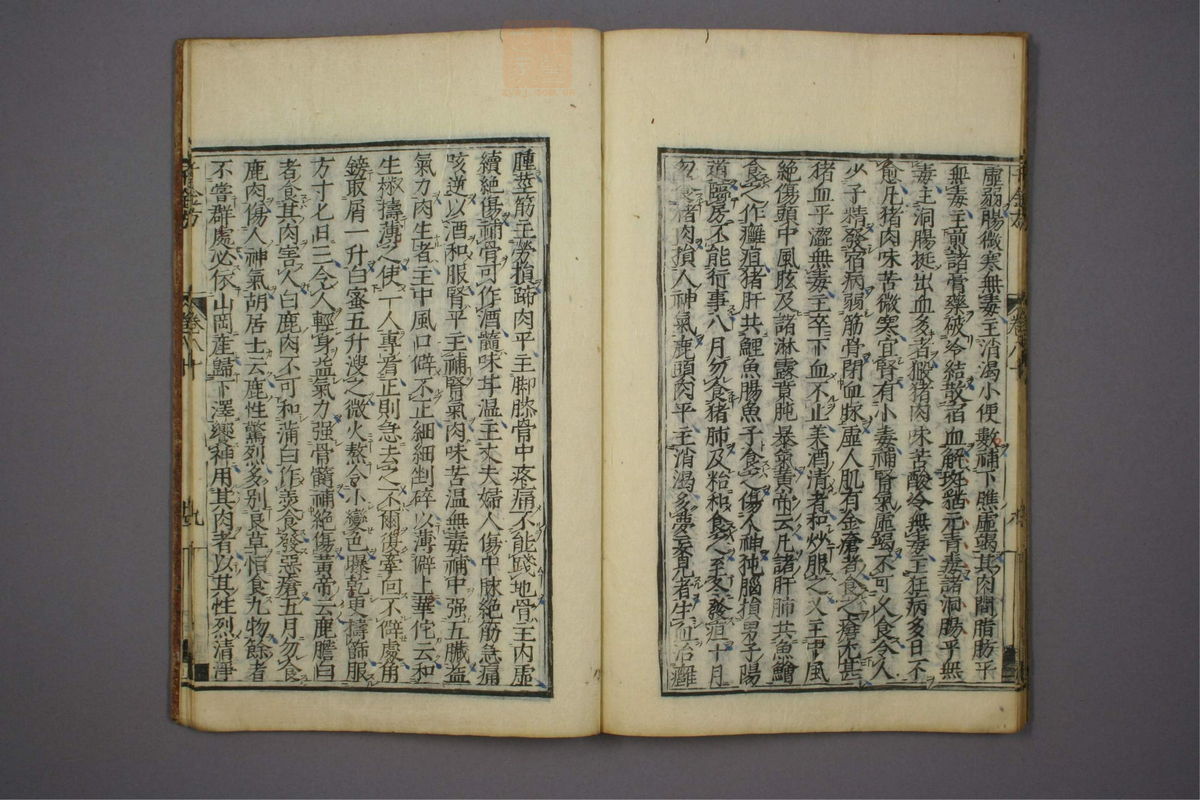 虛弱腸微寒無毒主消渴小便數補下膲虛竭其肉間脂肪平
無毒主煎諸膏藥破冷結散宿血解斑猫元青毒諸洞腸平無
毒主洞腸挺出血多者豭猪肉味苦酸冷無毒主狂病多日不
愈凡猪肉味苦微寒宜腎有小毒補腎氣虛竭不可久食令人
少子精發宿病弱筋骨閉血脉虛人肌有金瘡者食之瘡尤甚
猪血平澀無毒主卒下血不止美酒清者和炒服之又主中風
絶傷頭中風眩及諸淋露賁肫暴氣黃帝云凡諸肝肺共魚鱠
食之作癰疽猪肝共鯉魚腸魚子食之傷人神㹠腦損男子陽
道臨房不能行事八月勿食猪肺及飴和食之至冬發疽十月
勿食猪肉損人神氣鹿頭肉平主消渴多夢妄見者生血治癰
腫莖筋主勞損蹄肉平主脚膝骨中疼痛不能踐地骨主内虛
續絶傷補骨可作酒髓味甘溫主丈夫婦人傷中脉絶筋急痛
咳逆以酒和服腎平主補腎氣肉味苦温無毒補中强五臟益
氣力肉生者主中風口僻不正細細剉碎以薄僻上華佗云和
生椒擣薄之使一人專看正則急去之不爾復牽回不僻處角
鎊取屑一升白蜜五升溲之微火熬令小變色曝乾更擣篩服
方寸匕日三令人輕身益氣力强骨髓補絶傷黃帝云鹿膽白
者食其肉害人白鹿肉不可和蒲白作羮食發惡瘡五月勿食
鹿肉傷人神氣胡居士云鹿性驚烈多别良草恒食九物餘者
不嘗群處必依山岡産歸下澤饗神用其肉者以其性烈清淨
千金方
卷八十
九